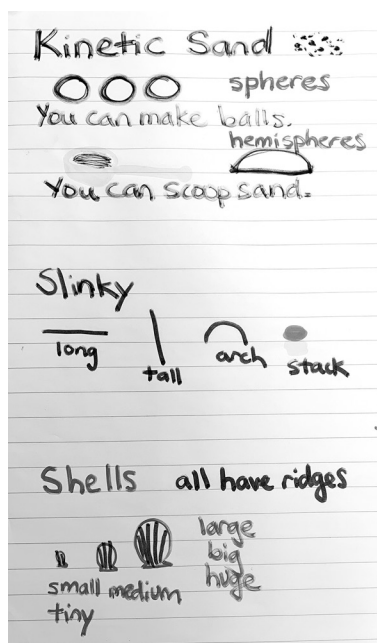 Kinetic Sand
spheres
You can make balls.
hemispheres
You can scoop sand.
Slinky
long
tall
arch
stack
Shells all have ridges
large
big
huge
small medium
tiny